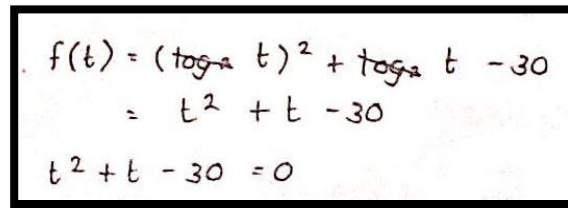 f(t) = (log₂ t)² + log₂ t - 30
= t² + t - 30
t² + t - 30 = 0